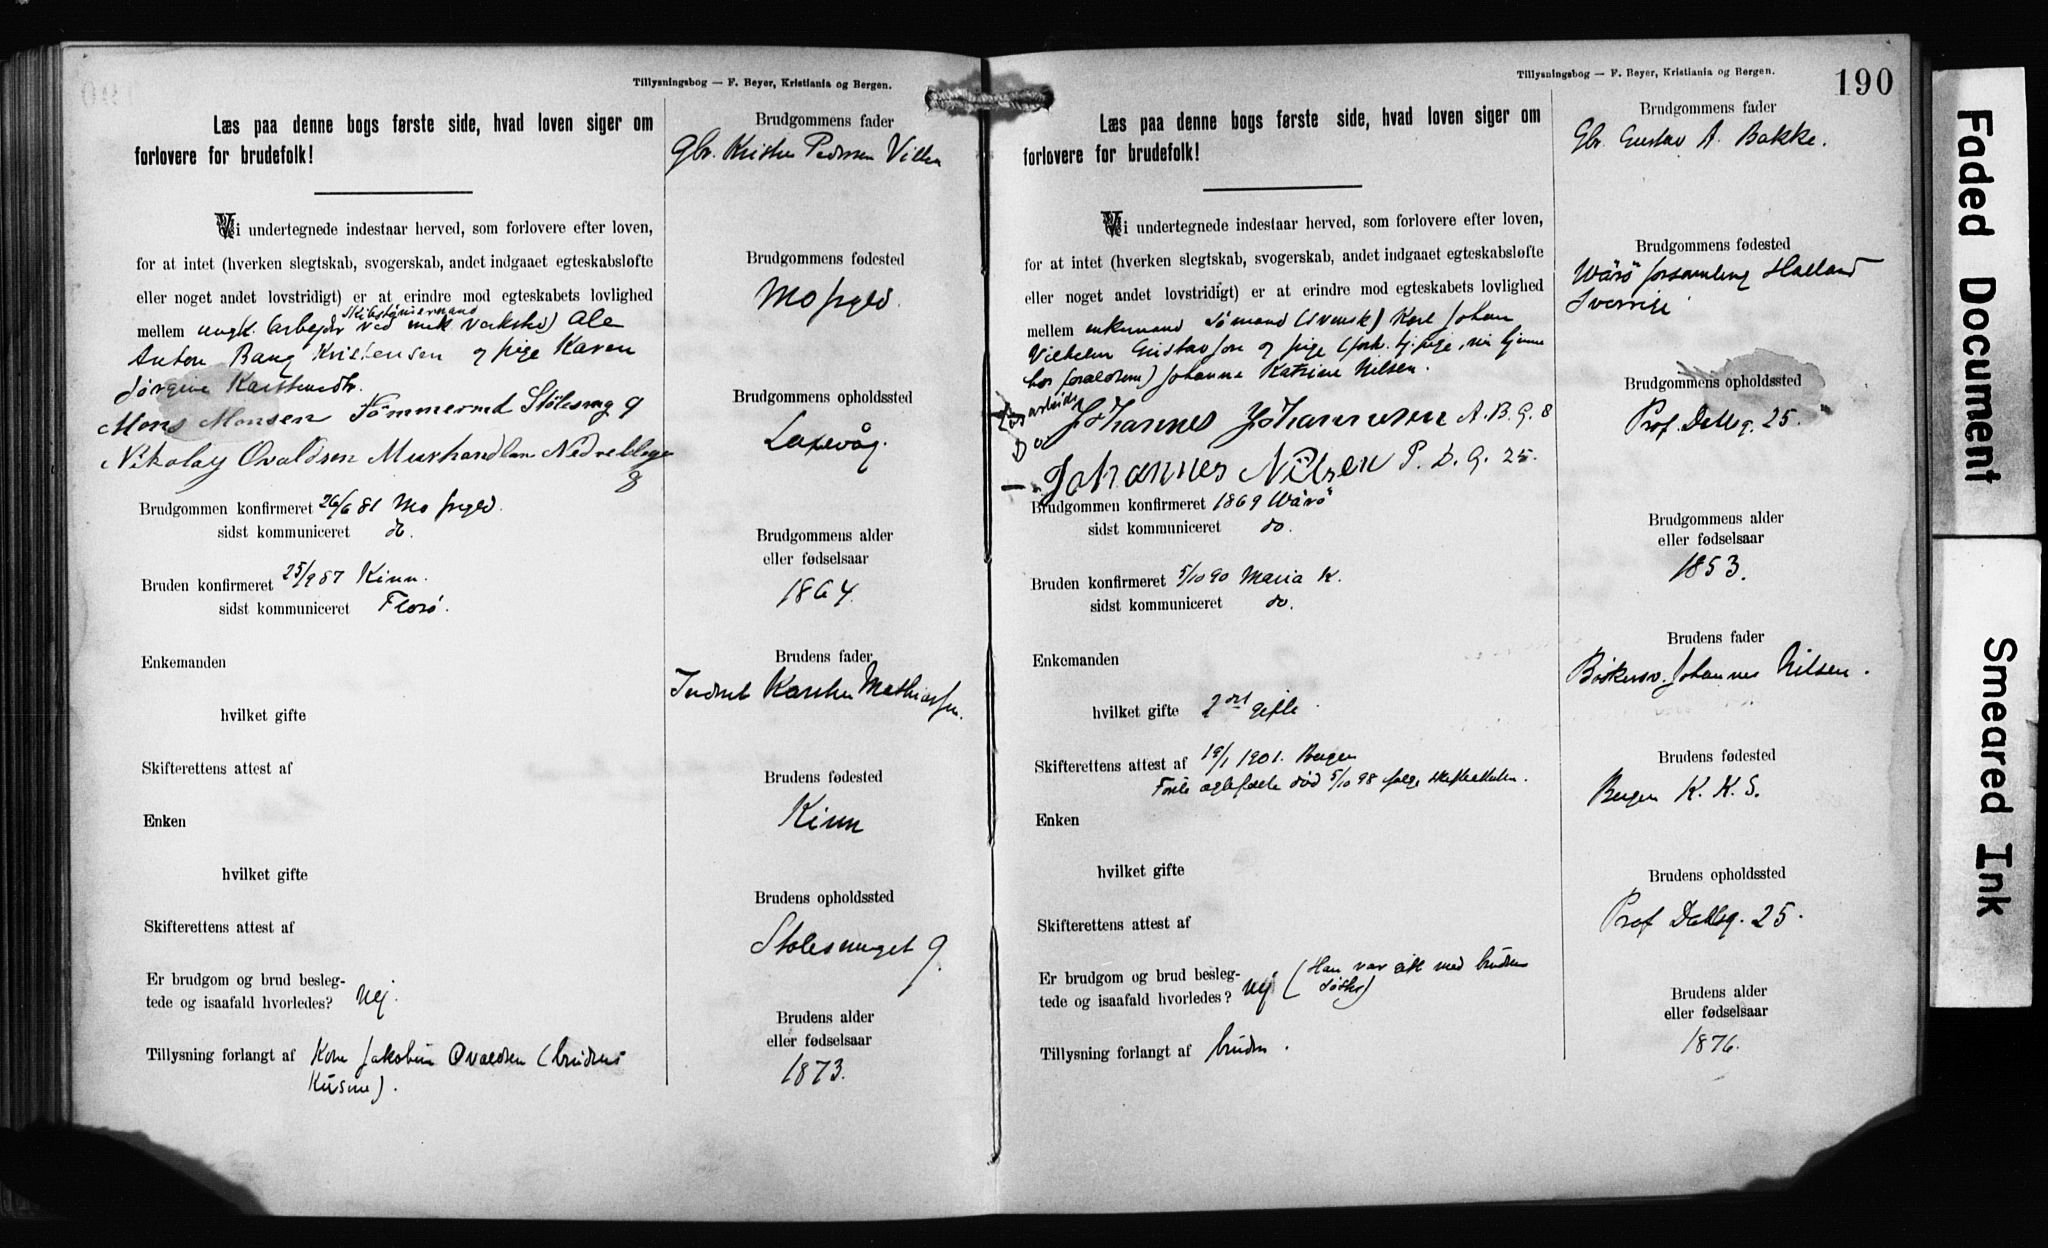 Tillysningsbog — F. Beyer, Kristiania og Bergen.
Læs paa denne bogs første side, hvad loven siger om
forlovere for brudefolk!
Vi undertegnede indestaar herved, som forlovere efter loven,
for at intet (hverken slegtskab, svogerskab, andet indgaaet egteskabsløfte
eller noget andet lovstridigt) er at erindre mod egteskabets lovlighed
Skibstømmermand
mellem ungk. (arbejder ved mek verksted) Ole
Anton Bang Kristensen og pige Karen
Jørgine Karstensdtr.
Mons Monsen Tømmermd Stølesmug 9
Nikolay Ovaldsen Murhandlan Nedre
8
Brudgommen konfirmeret 26/6 81 Mo prgld.
sidst kommuniceret do.
Bruden konfirmeret 25/9 87 Kinn.
sidst kommuniceret Florø.
Enkemanden
hvilket gifte
Skifterettens attest af
Enken
hvilket gifte
Skifterettens attest af
Er brudgom og brud besleg-
tede og isaafald hvorledes? Nej.
Tillysning forlangt af Kone Jakobine Ovaldsen (brudens
Kusine).
Brudgommens fader
Gbr. Kristen Pedersen
Brudgommens fødested
Mo prgld.
Brudgommens opholdssted
Laxevåg.
Brudgommens alder
eller fødselsaar
1864.
Brudens fader
Inderst Karsten Mathiassen.
Brudens fødested
Kinn
Brudens opholdssted
Stølesmuget 9.
Brudens alder
eller fødselsaar
1873.
Tillysningsbog — F. Beyer, Kristiania og Bergen.
190
Læs paa denne bogs første side, hvad loven siger om
forlovere for brudefolk!
Vi undertegnede indestaar herved, som forlovere efter loven,
for at intet (hverken slegtskab, svogerskab, andet indgaaet egteskabsløfte
eller noget andet lovstridigt) er at erindre mod egteskabets lovlighed
mellem enkemand Sømand (svensk) Karl Johan
Vilhelm Gustavson og pige (forh. tj.pige, nu hjemme
hos forældrene) Johanna Katrine Nilsen.
Johannes Johannesen A. B. G. 8
Do
Johannes Nilsen P. D. G. 25.
Brudgommen konfirmeret 1869 Wärö
sidst kommuniceret do.
Bruden konfirmeret 5/10 90 Maria K.
sidst kommuniceret do.
Enkemanden
hvilket gifte 2det gifte.
Skifterettens attest af 19/1 1901. Bergen
Første ægtefælle død 5/10 98 ifølge skifteattesten.
Enken
hvilket gifte
Skifterettens attest af
Er brudgom og brud besleg-
tede og isaafald hvorledes? Nej (Han var gift med brudens
søster)
Tillysning forlangt af bruden.
Brudgommens fader
Gbr. Gustav A. Bakke.
Brudgommens fødested
Wärö forsamling Halland
Sverrige
Brudgommens opholdssted
Prof. Dahlsg. 25.
Brudgommens alder
eller fødselsaar
1853.
Brudens fader
Bødkersv. Johannes Nilsen.
Brudens fødested
Bergen K. K. S.
Brudens opholdssted
Prof Dahlsg. 25.
Brudens alder
eller fødselsaar
1876.
Faded Document
Smeared Ink